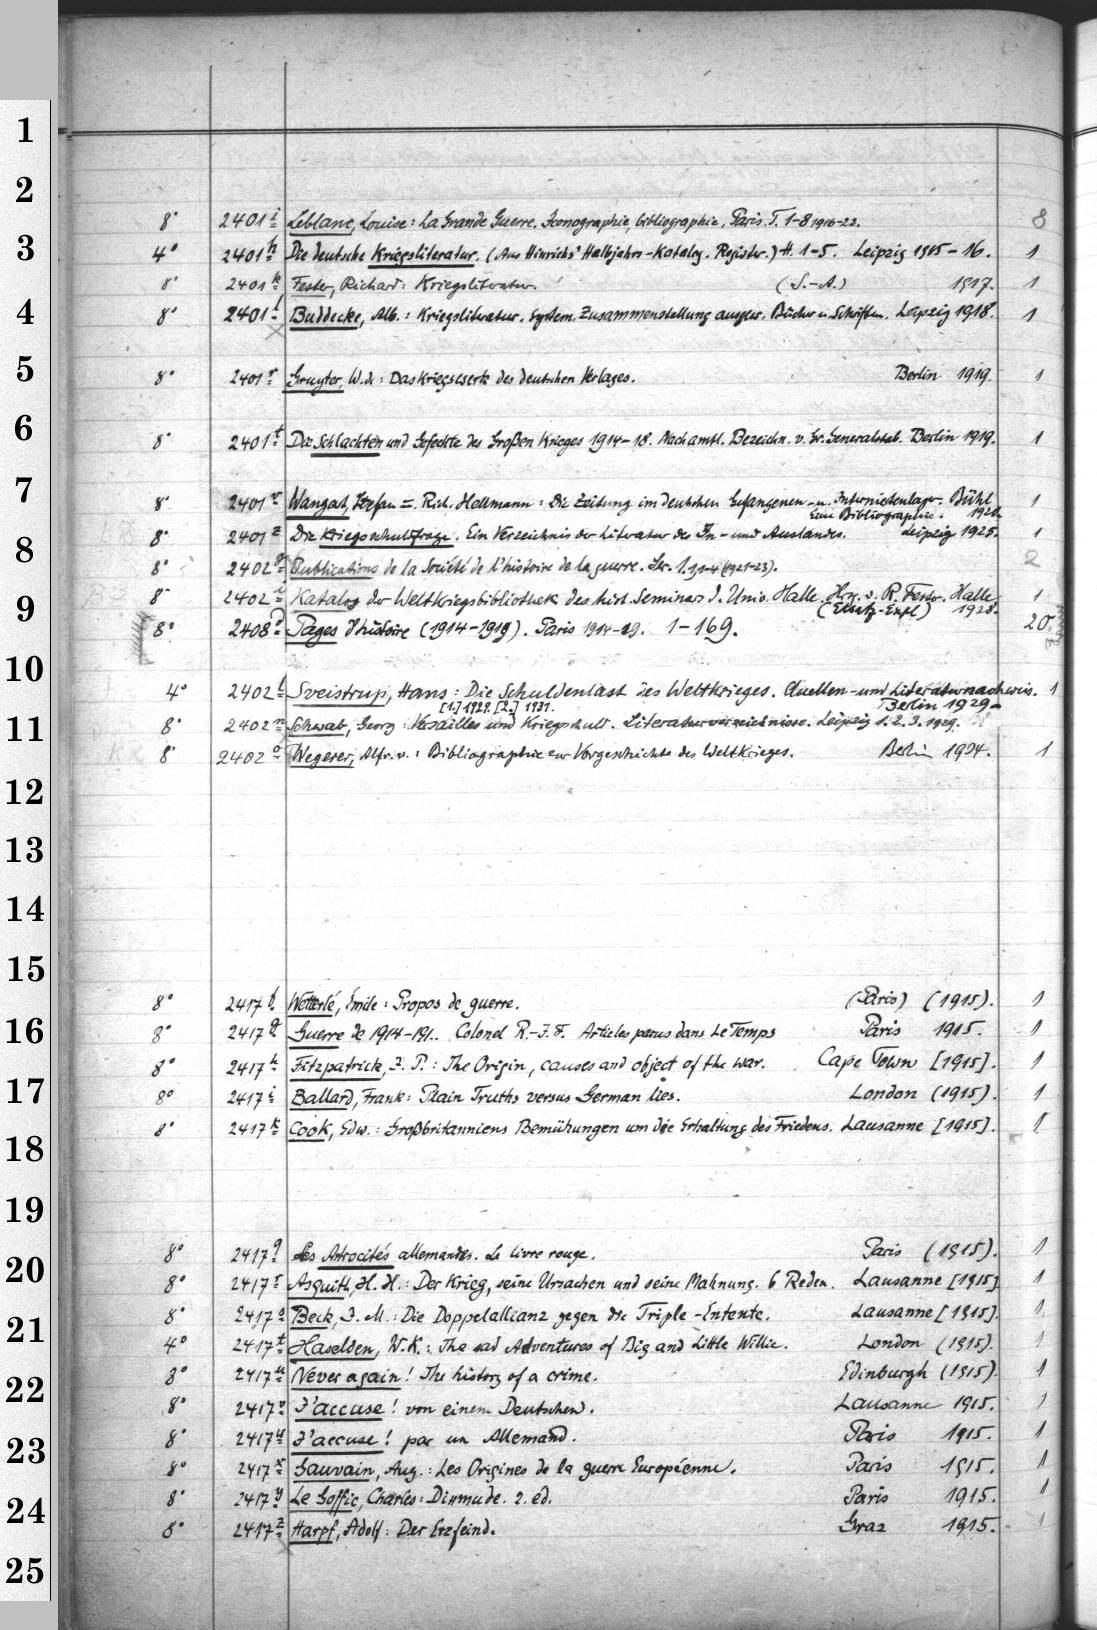 1
2
8° 2401 i Leblanc, Louise: La Grande Guerre. Iconographie, bibliographie. Paris. T. 1-8 1916-22. 8
3
4° 2401 h Die deutsche Kriegsliteratur. (Aus Hinrichs' Halbjahrs-Katalog. Register.) H. 1-5. Leipzig 1915-16. 1
8° 2401 k Fester, Richard: Kriegsliteratur. (S.-A.) 1917. 1
4
8° 2401 l Buddecke, Alb.: Kriegsliteratur. System. Zusammenstellung ausgew. Bücher u. Schriften. Leipzig 1918. 1
5
8° 2401 r Gruyter, W. de: Das Kriegswerk des deutschen Verlages. Berlin 1919. 1
6
8° 2401 t Die Schlachten und Gefechte des Großen Krieges 1914-18. Nach amtl. Bezeichn. v. Gr. Generalstab. Berlin 1919. 1
7
8° 2401 v Wangart, Stefan = Rich. Hellmann: Die Zeitung im deutschen Gefangenen- u. Internierenlager. Bühl 1
Eine Bibliographie. 1920.
8° 2401 z Die Kriegsschuldfrage. Ein Verzeichnis der Literatur des In- und Auslandes. Leipzig 1925. 1
8
8° 2402 Publications de la Société de l'histoire de la guerre. Sér. 1. 1-4 (1921-23). 2
8° 2402 i Katalog der Weltkriegsbibliothek des hist. Seminars d. Univ. Halle. Hrg. v. R. Fester. Halle 1
9
(Ersatz-Expl) 1928.
8° 2408 Pages d'histoire (1914-1919). Paris 1914-19. 1-169. 20
10
4° 2402 l Sveistrup, Hans: Die Schuldenlast des Weltkrieges. Quellen- und Literaturnachweis. 1
[1.] 1929. [2.] 1931. Berlin 1929-
11
8° 2402 n Schwab, Georg: Versailles und Kriegsschuld. Literaturverzeichnisse. Leipzig 1. 2. 3. 1929.
8° 2402 o Wegerer, Alfr. v.: Bibliographie zur Vorgeschichte des Weltkrieges. Berlin 1934. 1
12
13
14
15
8° 2417 f Wetterlé, Émile: Propos de guerre. (Paris) (1915). 1
16
8° 2417 g Guerre de 1914-191.. Colonel R.-J. F. Articles parus dans Le Temps Paris 1915. 1
8° 2417 h Fitzpatrick, J. P.: The Origin, causes and object of the war. Cape Town [1915]. 1
17
8° 2417 i Ballard, Frank: Plain Truths versus German lies. London (1915). 1
8° 2417 k Cook, Edw.: Großbritanniens Bemühungen um die Erhaltung des Friedens. Lausanne [1915]. 1
18
19
8° 2417 q Les Atrocités allemandes. Le livre rouge. Paris (1915). 1
20
8° 2417 r Asquith, H. H.: Der Krieg, seine Ursachen und seine Mahnung. 6 Reden. Lausanne [1915] 1
8° 2417 s Beck, J. M.: Die Doppelallianz gegen die Triple-Entente. Lausanne [1915]. 1
21
4° 2417 t Haselden, W. K.: The sad Adventures of Big and Little Willie. London (1915). 1
8° 2417 u Never again! The history of a crime. Edinburgh (1915). 1
22
8° 2417 v J'accuse! von einem Deutschen. Lausanne 1915. 1
8° 2417 w J'accuse! par un Allemand. Paris 1915. 1
23
8° 2417 x Gauvain, Aug.: Les Origines de la guerre Européenne. Paris 1915. 1
8° 2417 y Le Goffic, Charles: Dixmude. 2. éd. Paris 1915. 1
24
8° 2417 z Harpf, Adolf: Der Erzfeind. Graz 1915. 1
25